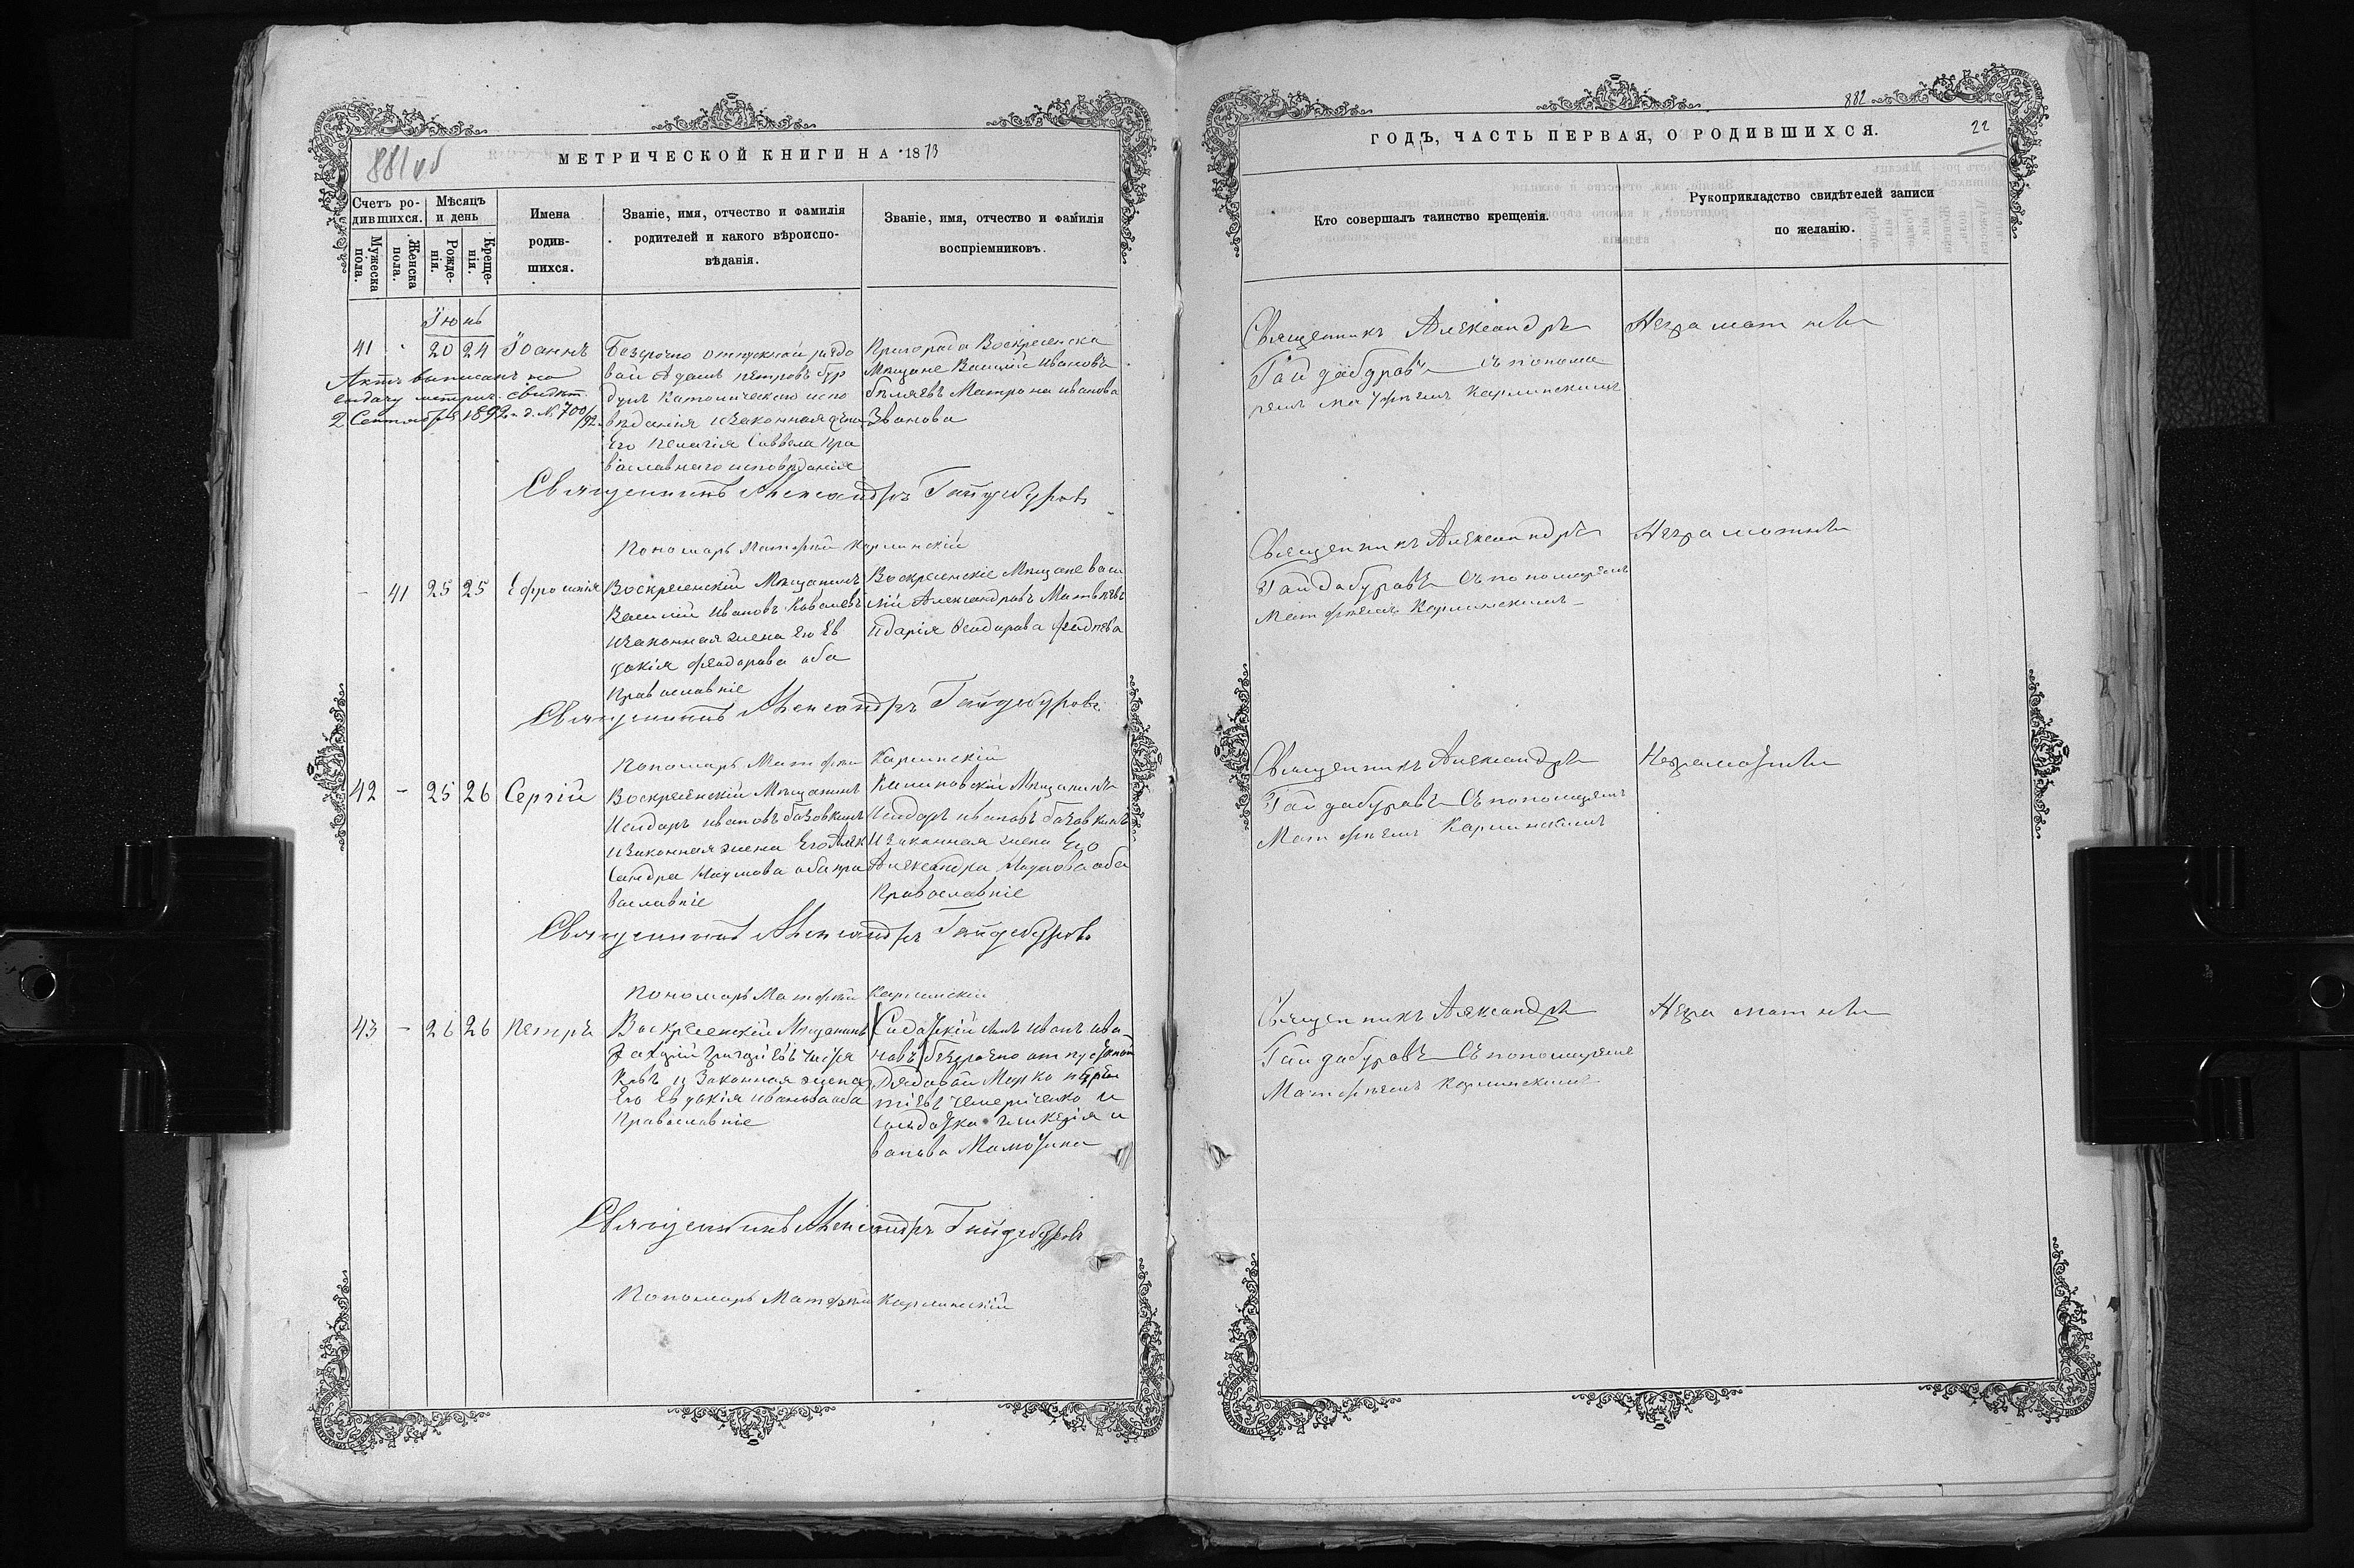 881 об
МЕТРИЧЕСКОЙ КНИГИ НА 1873
Счетъ ро-
дившихся.
Мѣсяцъ
и день
Мужеска
пола.
Женска
пола.
Рожде-
нія.
Креще-
нія.
Имена
родив-
шихся.
Званіе, имя, отчество и фамилія
родителей и какого вѣроиспо-
вѣданія.
Званіе, имя, отчество и фамилія
воспріемниковъ.
Іюнь
41 20 24 Іоаннъ
Актъ выписанъ на
выдачу метрич. свидѣт.
2 Сентября 1892 г. д. № 700/92
Безсрочно отпускной рядо
вой Адамъ Петровъ
Католическаго испо
вѣданія и законная жена
Его Пелагія Саввева пра
вославнаго исповѣданія
Пригорода Воскресенска
Мѣщане Василій Ивановъ
Бѣляевъ Матрона Иванова
Званова
Священникъ Александръ Гайдабуровъ
Пономарь Матфей Карминскій
- 41 25 25 Ефросинія
Воскресенскій Мѣщанинъ
Василій Ивановъ Ковалевъ
и законная жена Его Ев
докія Феодорова оба
Православніе
Воскресенскіе Мѣщане Васи
лій Александровъ Матвѣевъ
и Дарія Феодорова
Священникъ Александръ Гайдабуровъ
Пономарь Матфей Карминскій
42 - 25 26 Сергій
Воскресенскій Мѣщанинъ
Исидоръ Ивановъ Базовкинъ
и законная жена Его Алек
сандра Наумова оба пра
вославніе
Мѣщанинъ
Исидоръ Ивановъ Базовкинъ
и законная жена Его
Александра Наумова оба
Православніе
Священникъ Александръ Гайдабуровъ
Пономарь Матфей Карминскій
43 - 26 26 Петръ
Воскресенскій Мѣщанинъ
Григоріевъ
и Законная жена
Его Евдокія Иванова оба
Православніе
Солдатскій сынъ Иванъ Ива
новъ безсрочно отпускной
Рядовой Марко
и
Солдатка и
ванова
Священникъ Александръ Гайдабуровъ
Пономарь Матфей Карминскій
882
22
ГОДЪ, ЧАСТЬ ПЕРВАЯ, О РОДИВШИХСЯ.
Кто совершалъ таинство крещенія.
Рукоприкладство свидѣтелей записи
по желанію.
Священникъ Александръ
Гайдабуровъ съ понома
ремъ Матфѣемъ Карминскимъ
Неграмотни
Священникъ Александръ
Гайдабуровъ Съ пономаремъ
Матфѣемъ Карминскимъ
Неграмотни
Священникъ Александръ
Гайдабуровъ Съ пономаремъ
Матфѣемъ Карминскимъ
Неграмотни
Священникъ Александръ
Гайдабуровъ Съ пономаремъ
Матфѣемъ Карминскимъ
Неграмотни